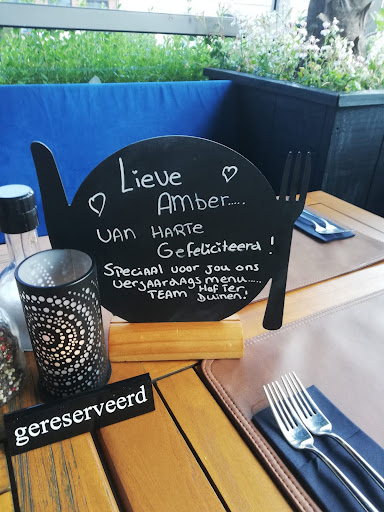 Lieve
Amber.....
van harte
Gefeliciteerd!
Speciaal voor jou ons
verjaardagsmenu.....
Team Hof Ter
Duinen!
gereserveerd